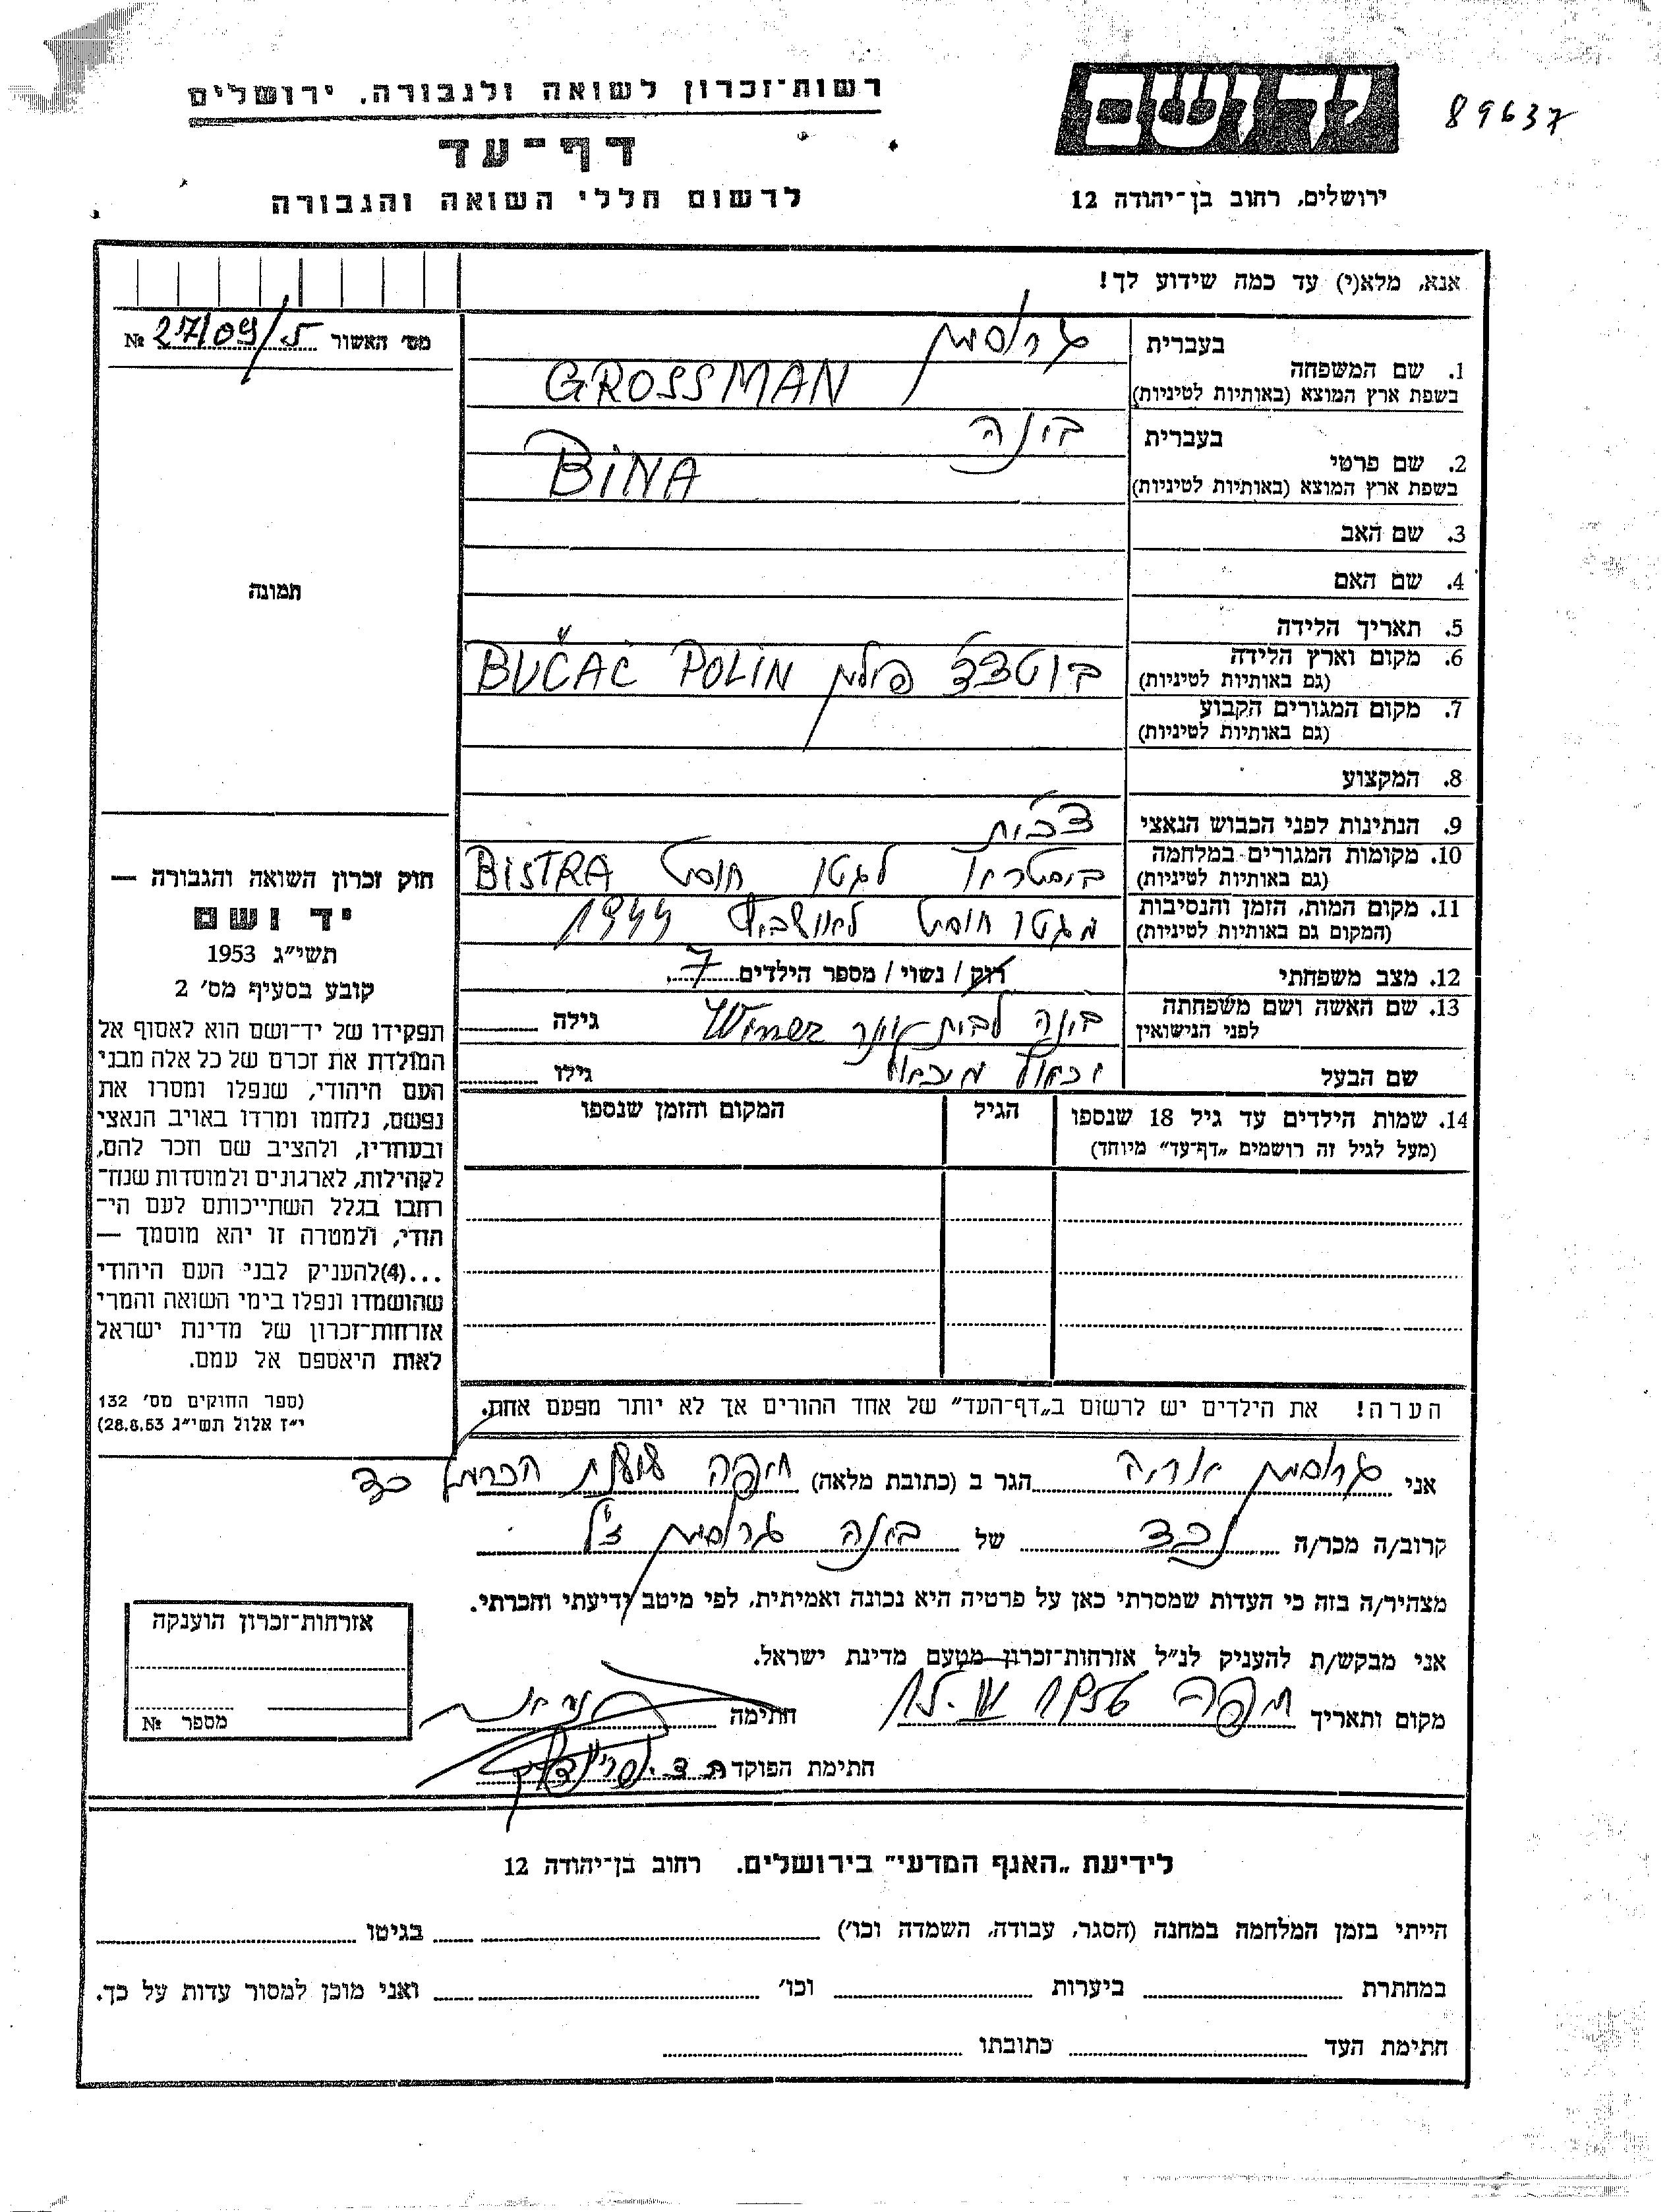 89637
יד ושם
ירושלים, רחוב בן־יהודה 12
רשות־זכרון לשואה ולגבורה, ירושלים
דף־עד
לרשום חללי השואה והגבורה
אנא, מלא(י) עד כמה שידוע לך!
מס׳ האשור 27109/5 №
תמונה
1. שם המשפחה
בעברית גרוסמן
בשפת ארץ המוצא (באותיות לטיניות) GROSSMAN
2. שם פרטי
בעברית בינה
בשפת ארץ המוצא (באותיות לטיניות) BINA
3. שם האב
4. שם האם
5. תאריך הלידה
6. מקום וארץ הלידה
(גם באותיות לטיניות) פולין BUČAČ POLIN
7. מקום המגורים הקבוע
(גם באותיות לטיניות)
8. המקצוע
9. הנתינות לפני הכבוש הנאצי צ׳כית
10. מקומות המגורים במלחמה
(גם באותיות לטיניות) לגטו חוסט BISTRA
11. מקום המות, הזמן והנסיבות
(המקום גם באותיות לטיניות) מגטו חוסט לאושביץ 1944
12. מצב משפחתי רוק / נשוי / מספר הילדים 7
13. שם האשה ושם משפחתה
לפני הנישואין בינה לבית Winer גילה
שם הבעל גילו
14. שמות הילדים עד גיל 18 שנספו הגיל המקום והזמן שנספו
(מעל לגיל זה רושמים „דף־עד״ מיוחד)
הערה! את הילדים יש לרשום ב„דף־העד״ של אחד ההורים אך לא יותר מפעם אחת.
חוק זכרון השואה והגבורה —
יד ושם
תשי״ג 1953
קובע בסעיף מס׳ 2
תפקידו של יד־ושם הוא לאסוף אל
המולדת את זכרם של כל אלה מבני
העם היהודי, שנפלו ומסרו את
נפשם, נלחמו ומרדו באויב הנאצי
ובעוזריו, ולהציב שם וזכר להם,
לקהילות, לארגונים ולמוסדות שנח־
רבו בגלל השתייכותם לעם הי־
הודי, ולמטרה זו יהא מוסמך —
...(4)להעניק לבני העם היהודי
שהושמדו ונפלו בימי השואה והמרי
אזרחות־זכרון של מדינת ישראל
לאות היאספם אל עמם.
(ספר החוקים מס׳ 132
י״ז אלול תשי״ג 28.8.53)
אני גרוסמן אריה הגר ב (כתובת מלאה) חיפה הכרמל
קרוב/ה מכר/ה נכד של בינה גרוסמן ז״ל
מצהיר/ה בזה כי העדות שמסרתי כאן על פרטיה היא נכונה ואמיתית, לפי מיטב ידיעתי והכרתי.
אני מבקש/ת להעניק לנ״ל אזרחות־זכרון מטעם מדינת ישראל.
מקום ותאריך חיפה חתימה
חתימת הפוקד
אזרחות־זכרון הוענקה
מספר №
לידיעת „האגף המדעי״ בירושלים. רחוב בן־יהודה 12
הייתי בזמן המלחמה במחנה (הסגר, עבודה, השמדה וכו׳) בגיטו
במחתרת ביערות וכו׳ ואני מוכן למסור עדות על כך.
חתימת העד כתובתו